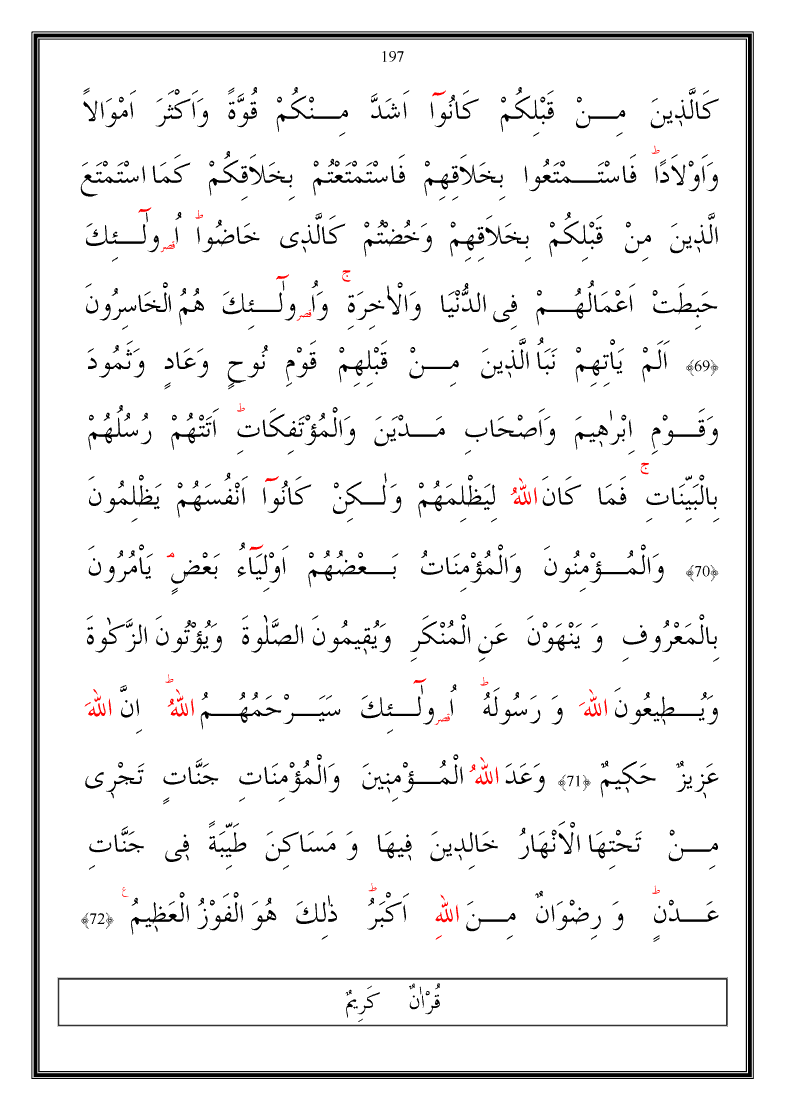 197
كَالَّذٖينَ مِـــنْ قَبْلِكُمْ كَانُٓوا اَشَدَّ مِـــنْكُمْ قُوَّةً وَاَكْثَرَ اَمْوَالاً
وَاَوْلاَدًاؕ فَاسْتَـــمْتَعُوا بِخَلَاقِهِمْ فَاسْتَمْتَعْتُمْ بِخَلَاقِكُمْ كَمَا اسْتَمْتَعَ
الَّذٖينَ مِنْ قَبْلِكُمْ بِخَلَاقِهِمْ وَخُضْتُمْ كَالَّذٖى خَاضُواؕ اُقصرولٰٓـــئِكَ
حَبِطَتْ اَعْمَالُهُـــمْ فِى الدُّنْيَا وَالْاٰخِرَةِۚ وَاُقصرولٰٓـــئِكَ هُمُ الْخَاسِرُونَ
﴿69﴾ اَلَمْ يَاْتِهِمْ نَبَاُ الَّذٖينَ مِـــنْ قَبْلِهِمْ قَوْمِ نُوحٍ وَعَادٍ وَثَمُودَ
وَقَـــوْمِ اِبْرٰهٖيمَ وَاَصْحَابِ مَـــدْيَنَ وَالْمُؤْتَفِكَاتِؕ اَتَتْهُمْ رُسُلُهُمْ
بِالْبَيِّنَاتِۚ فَمَا كَانَ اللّٰهُ لِيَظْلِمَهُمْ وَلٰـــكِنْ كَانُٓوا اَنْفُسَهُمْ يَظْلِمُونَ
﴿70﴾ وَالْمُـــؤْمِنُونَ وَالْمُؤْمِنَاتُ بَـــعْضُهُمْ اَوْلِيَٓاءُ بَعْضٍۘ يَاْمُرُونَ
بِالْمَعْرُوفِ وَ يَنْهَوْنَ عَنِ الْمُنْكَرِ وَيُقٖيمُونَ الصَّلٰوةَ وَيُؤْتُونَ الزَّكٰوةَ
وَيُـــطٖيعُونَ اللّٰهَ وَ رَسُولَهُؕ اُقصرولٰٓـــئِكَ سَيَـــرْحَمُهُـــمُ اللّٰهُؕ اِنَّ اللّٰهَ
عَزٖيزٌ حَكٖيمٌ ﴿71﴾ وَعَدَ اللّٰهُ الْمُـــؤْمِنٖينَ وَالْمُؤْمِنَاتِ جَنَّاتٍ تَجْرٖى
مِـــنْ تَحْتِهَا الْاَنْهَارُ خَالِدٖينَ فٖيهَا وَ مَسَاكِنَ طَيِّبَةً فٖى جَنَّاتِ
عَـــدْنٍؕ وَ رِضْوَانٌ مِـــنَ اللّٰهِ اَكْبَرُؕ ذٰلِكَ هُوَ الْفَوْزُ الْعَظٖيمُ ع ﴿72﴾
قُرْاٰنٌ كَرٖيمٌ